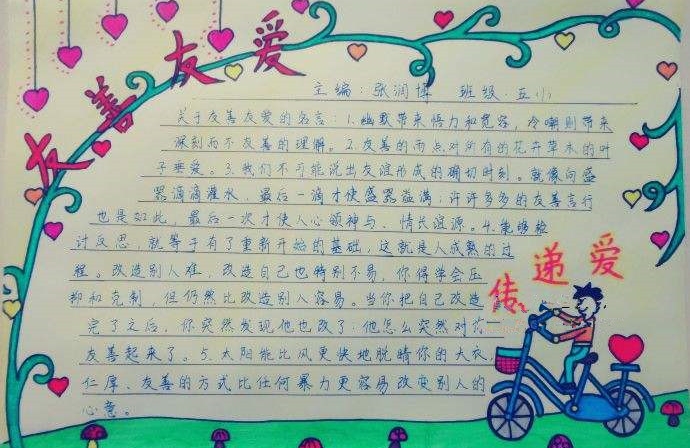 友善友爱
主编:张润博 班级.五小
关于友善友爱的名言:1.幽默带来悟力和宽容,冷嘲则带来
深刻而不友善的理解。2.友善的雨点对所有的花卉草木的叶
子垂爱。3.我们不可能说出友谊形成的确切时刻。就像向盛
器滴滴灌水,最后一滴才使盛器溢满;许许多多的友善言行
也是如此,最后一次才使人心领神与、情长谊源。4.能够检
讨反思,就等于有了重新开始的基础,这就是人成熟的过
程。改造别人难,改造自己也特别不易,你得学会压
抑和克制,但仍然比改造别人容易。当你把自己改造
完了之后,你突然发现他也改了:他怎么突然对
友善起来了。5.太阳能比风更快地脱晴你的大衣,
仁厚、友善的方式比任何暴力更容易改变别人的
心意。
传递爱